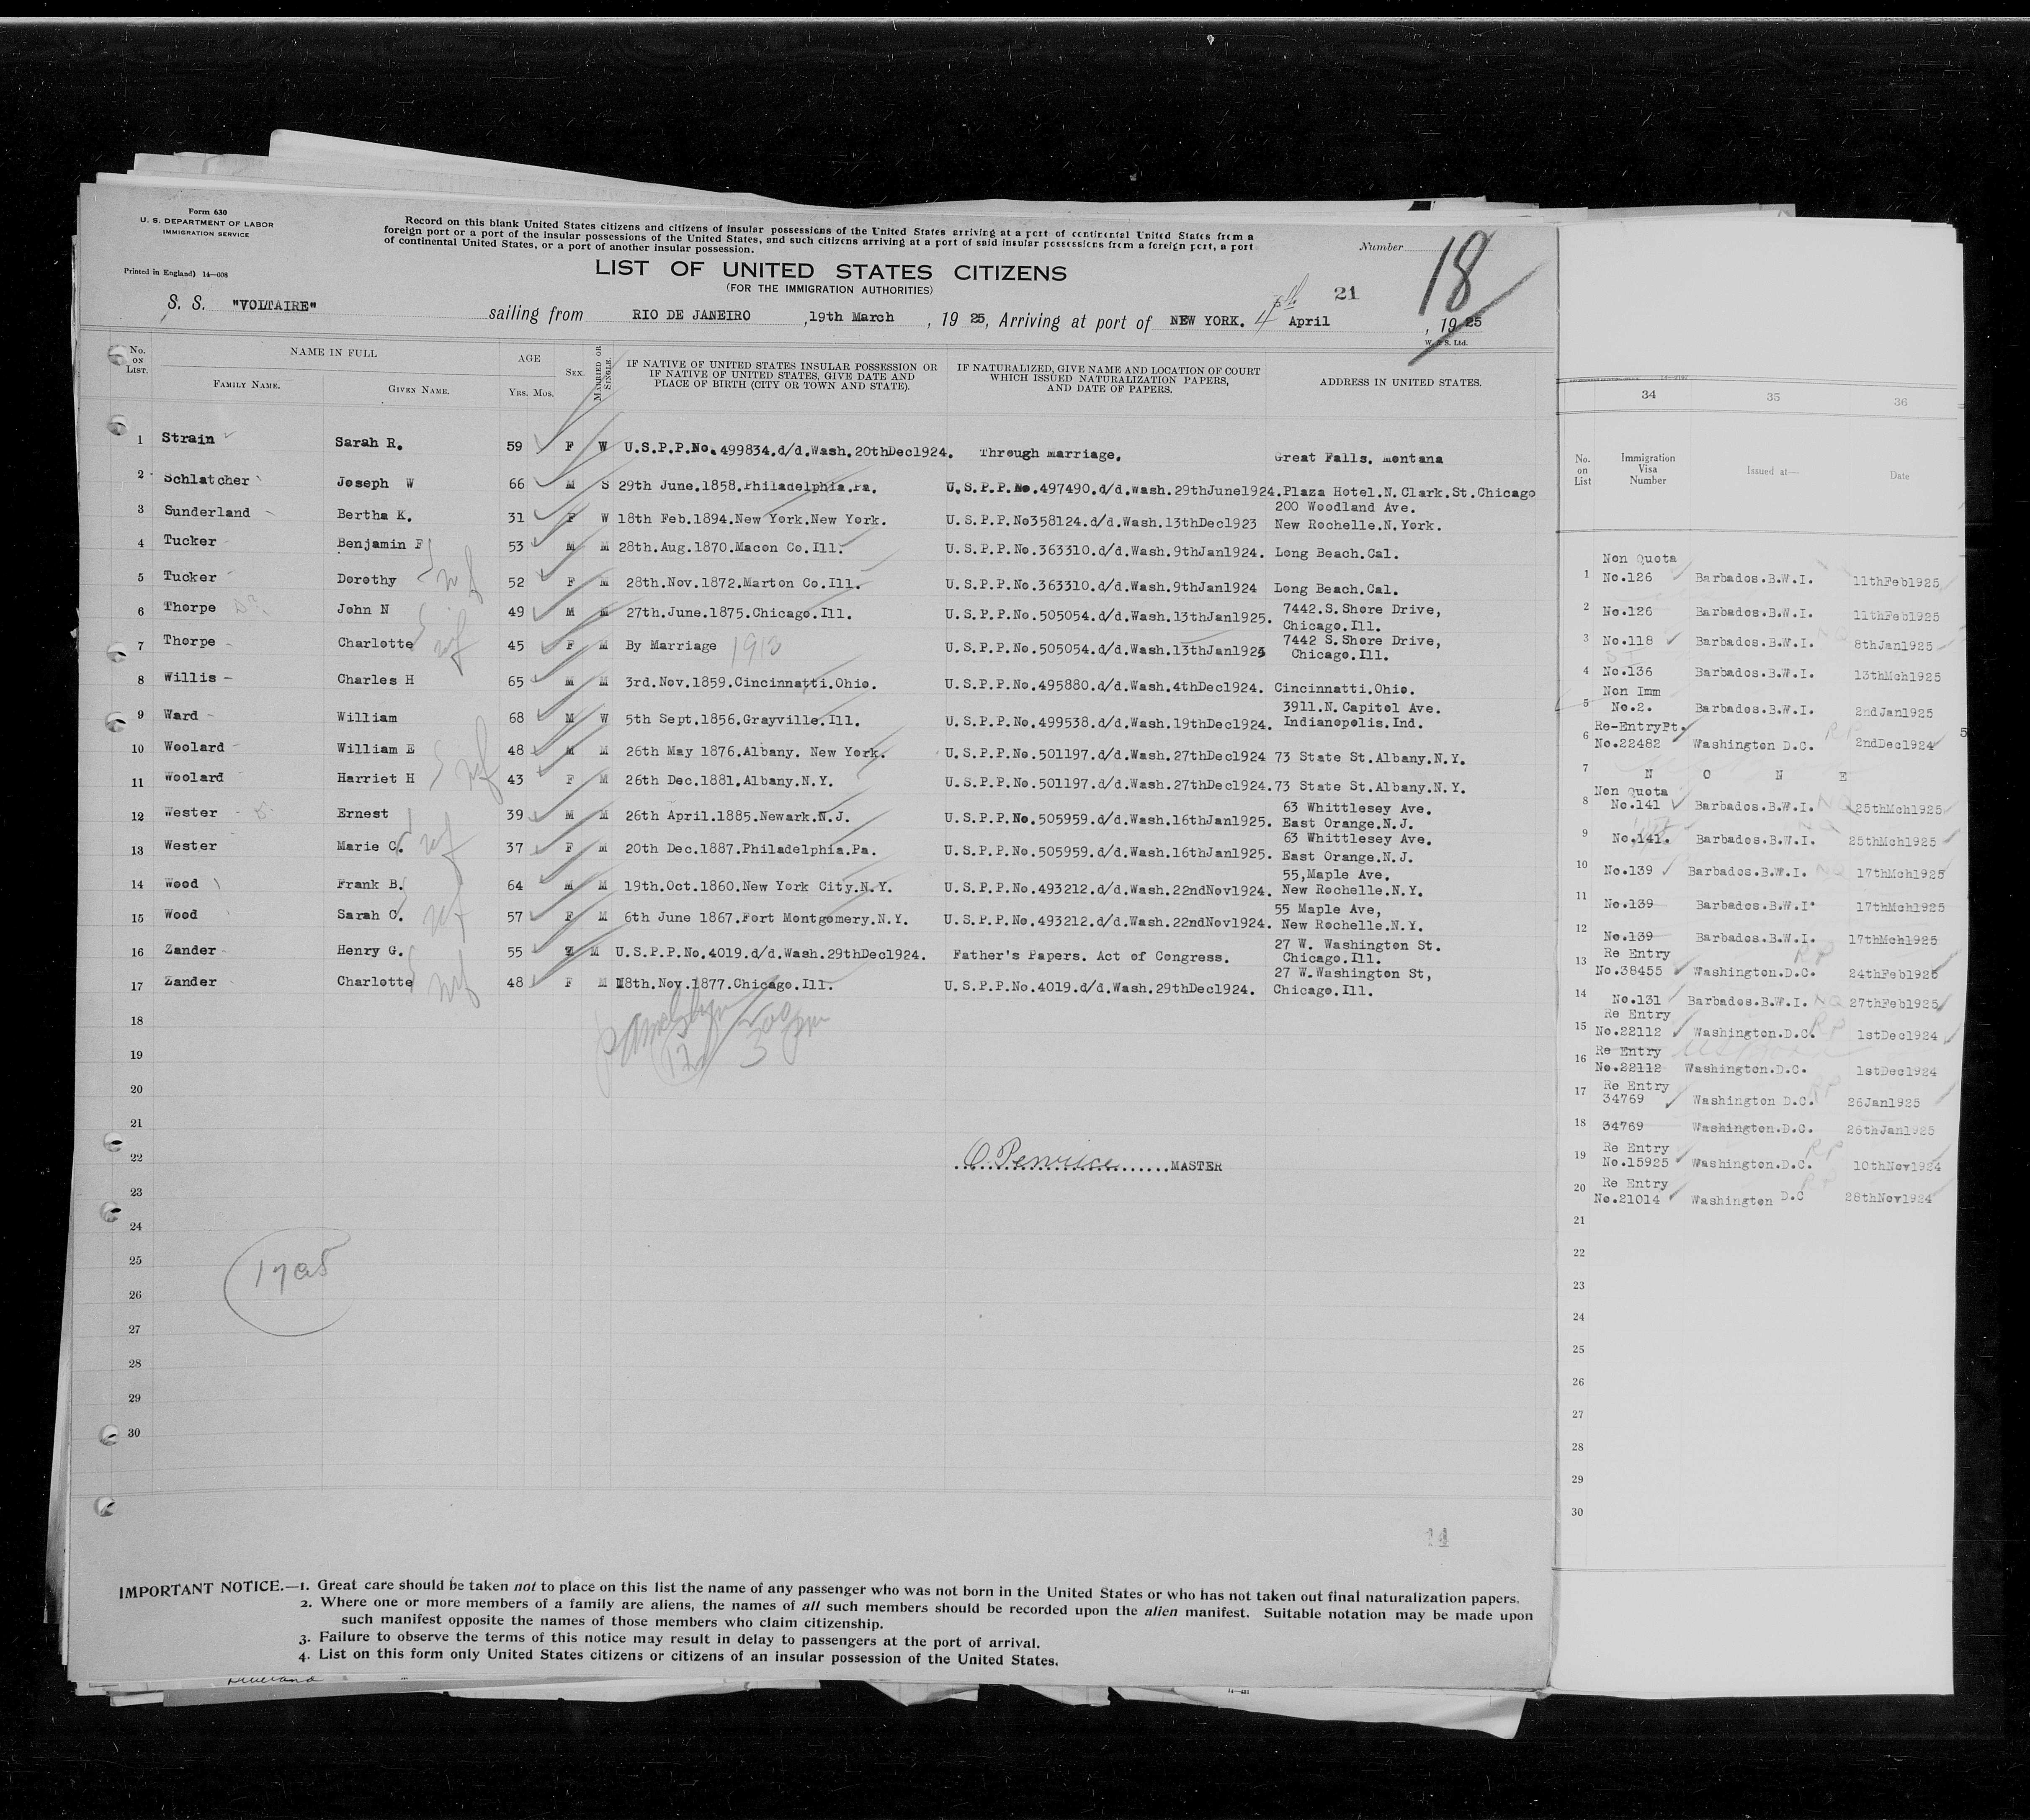 Form 630
U. S. DEPARTMENT OF LABOR
IMMIGRATION SERVICE
Printed in England) 14—608
Record on this blank United States citizens and citizens of insular possessions of the United States arriving at a port of continental United States from a
foreign port or a port of the insular possessions of the United States, and such citizens arriving at a port of said insular possessions from a foreign port, a port
of continental United States, or a port of another insular possession.
Number
18
LIST OF UNITED STATES CITIZENS
(FOR THE IMMIGRATION AUTHORITIES)
21
S. S. "VOLTAIRE" sailing from RIO DE JANEIRO ,19th March , 19 25, Arriving at port of NEW YORK. 4 April , 19 25
W. & S. Ltd.
No. ON LIST. NAME IN FULL FAMILY NAME. GIVEN NAME. AGE Yrs. Mos. SEX. MARRIED OR SINGLE.
IF NATIVE OF UNITED STATES INSULAR POSSESSION OR IF NATIVE OF UNITED STATES, GIVE DATE AND PLACE OF BIRTH (CITY OR TOWN AND STATE).
IF NATURALIZED, GIVE NAME AND LOCATION OF COURT WHICH ISSUED NATURALIZATION PAPERS, AND DATE OF PAPERS.
ADDRESS IN UNITED STATES.
1 Strain Sarah R. 59 F W U.S.P.P.No.499834.d/d.Wash.20thDec1924. Through marriage. Great Falls. Montana
2 Schlatcher Joseph W 66 M S 29th June.1858.Philadelphia.Pa. U.S.P.P.No.497490.d/d.Wash.29thJune1924.Plaza Hotel.N.Clark.St.Chicago
3 Sunderland Bertha K. 31 F W 18th Feb.1894.New York.New York. U.S.P.P.No358124.d/d.Wash.13thDec1923 200 Woodland Ave. New Rochelle.N.York.
4 Tucker Benjamin F 53 M M 28th.Aug.1870.Macon Co.Ill. U.S.P.P.No.363310.d/d.Wash.9thJan1924. Long Beach.Cal.
5 Tucker Dorothy 52 F M 28th.Nov.1872.Marton Co.Ill. U.S.P.P.No.363310.d/d.Wash.9thJan1924 Long Beach.Cal.
6 Thorpe John N 49 M M 27th.June.1875.Chicago.Ill. U.S.P.P.No.505054.d/d.Wash.13thJan1925. 7442.S.Shore Drive, Chicago.Ill.
7 Thorpe Charlotte 45 F M By Marriage 1913 U.S.P.P.No.505054.d/d.Wash.13thJan1925 7442 S.Shore Drive, Chicago.Ill.
8 Willis Charles H 65 M M 3rd.Nov.1859.Cincinnatti.Ohio. U.S.P.P.No.495880.d/d.Wash.4thDec1924. Cincinnatti.Ohio.
9 Ward William 68 M W 5th Sept.1856.Grayville.Ill. U.S.P.P.No.499538.d/d.Wash.19thDec1924. 3911.N.Capitol Ave. Indianopolis.Ind.
10 Woolard William E 48 M M 26th May 1876.Albany. New York. U.S.P.P.No.501197.d/d.Wash.27thDec1924 73 State St.Albany.N.Y.
11 Woolard Harriet H 43 F M 26th Dec.1881.Albany.N.Y. U.S.P.P.No.501197.d/d.Wash.27thDec1924.73 State St.Albany.N.Y.
12 Wester Ernest 39 M M 26th April.1885.Newark.N.J. U.S.P.P.No.505959.d/d.Wash.16thJan1925. 63 Whittlesey Ave. East Orange.N.J.
13 Wester Marie C. 37 F M 20th Dec.1887.Philadelphia.Pa. U.S.P.P.No.505959.d/d.Wash.16thJan1925. 63 Whittlesey Ave. East Orange.N.J.
14 Wood Frank B. 64 M M 19th.Oct.1860.New York City.N.Y. U.S.P.P.No.493212.d/d.Wash.22ndNov1924. 55,Maple Ave. New Rochelle.N.Y.
15 Wood Sarah C. 57 F M 6th June 1867.Fort Montgomery.N.Y. U.S.P.P.No.493212.d/d.Wash.22ndNov1924. 55 Maple Ave, New Rochelle.N.Y.
16 Zander Henry G. 55 M U.S.P.P.No.4019.d/d.Wash.29thDec1924. Father's Papers. Act of Congress. 27 W. Washington St. Chicago.Ill.
17 Zander Charlotte 48 F M 18th.Nov.1877.Chicago.Ill. U.S.P.P.No.4019.d/d.Wash.29thDec1924. 27 W.Washington St, Chicago.Ill.
18
19
20
21
22 MASTER
23
24
25
26
27
28
29
30
14
IMPORTANT NOTICE.—1. Great care should be taken not to place on this list the name of any passenger who was not born in the United States or who has not taken out final naturalization papers.
2. Where one or more members of a family are aliens, the names of all such members should be recorded upon the alien manifest. Suitable notation may be made upon
such manifest opposite the names of those members who claim citizenship.
3. Failure to observe the terms of this notice may result in delay to passengers at the port of arrival.
4. List on this form only United States citizens or citizens of an insular possession of the United States.
34 35 36
No. on List Immigration Visa Number Issued at— Date
Non Quota
1 No.126 Barbados.B.W.I. 11thFeb1925
2 No.126 Barbados.B.W.I. 11thFeb1925
3 No.118 Barbados.B.W.I. 8thJan1925
4 No.136 Barbados.B.W.I. 13thMch1925
Non Imm
5 No.2. Barbados.B.W.I. 2ndJan1925
Re-EntryPt.
6 No.22482 Washington D.C. 2ndDec1924
7 N O N E
Non Quota
8 No.141 Barbados.B.W.I. 25thMch1925
9 No.141. Barbados.B.W.I. 25thMch1925
10 No.139 Barbados.B.W.I. 17thMch1925
11 No.139 Barbados.B.W.I. 17thMch1925
12 No.139 Barbados.B.W.I. 17thMch1925
Re Entry
13 No.38455 Washington.D.C. 24thFeb1925
14 No.131 Barbados.B.W.I. 27thFeb1925
Re Entry
15 No.22112 Washington.D.C. 1stDec1924
Re Entry
16 No.22112 Washington.D.C. 1stDec1924
Re Entry
17 34769 Washington D.C. 26Jan1925
18 34769 Washington.D.C. 26thJan1925
Re Entry
19 No.15925 Washington.D.C. 10thNov1924
Re Entry
20 No.21014 Washington D.C 28thNov1924
21
22
23
24
25
26
27
28
29
30